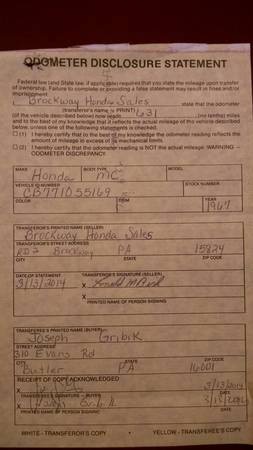 ODOMETER DISCLOSURE STATEMENT
Federal law (and State law, if applicable) required that you state the mileage upon transfer
of ownership. Failure to complete or providing a false statement may result in fines and/or
imprisonment.
I, Brockway Honda Sales state that the odometer
(transferor's name is PRINT)
(of the vehicle described below) now reads 631 (no tenths) miles
and to the best of my knowledge that it reflects the actual mileage of the vehicle described
below, unless one of the following statements is checked.
(1) I hereby certify that to the best of my knowledge the odometer reading reflects the
amount of mileage in excess of its mechanical limits.
(2) I hereby certify that the odometer reading is NOT the actual mileage. WARNING –
ODOMETER DISCREPANCY.
MAKE BODY TYPE MODEL
Honda MC
VEHICLE ID NUMBER STOCK NUMBER
CB771055169
COLOR YEAR
1967
TRANSFEROR'S PRINTED NAME (SELLER)
Brockway Honda Sales
TRANSFEROR'S STREET ADDRESS
RD 2 Brockway PA 15824
CITY STATE ZIP CODE
DATE OF STATEMENT TRANSFEROR'S SIGNATURE (SELLER)
3/13/2014 X
PRINTED NAME OF PERSON SIGNING
X
TRANSFEREE'S PRINTED NAME (BUYER)
Joseph Gribik
STREET ADDRESS
310 Evans Rd
CITY STATE ZIP CODE
Butler PA 16001
RECEIPT OF COPY ACKNOWLEDGED
X 3/13/2014
TRANSFEREE'S SIGNATURE (BUYER) DATE
X
PRINTED NAME OF PERSON SIGNING
WHITE - TRANSFEROR'S COPY • YELLOW - TRANSFEREE'S COPY